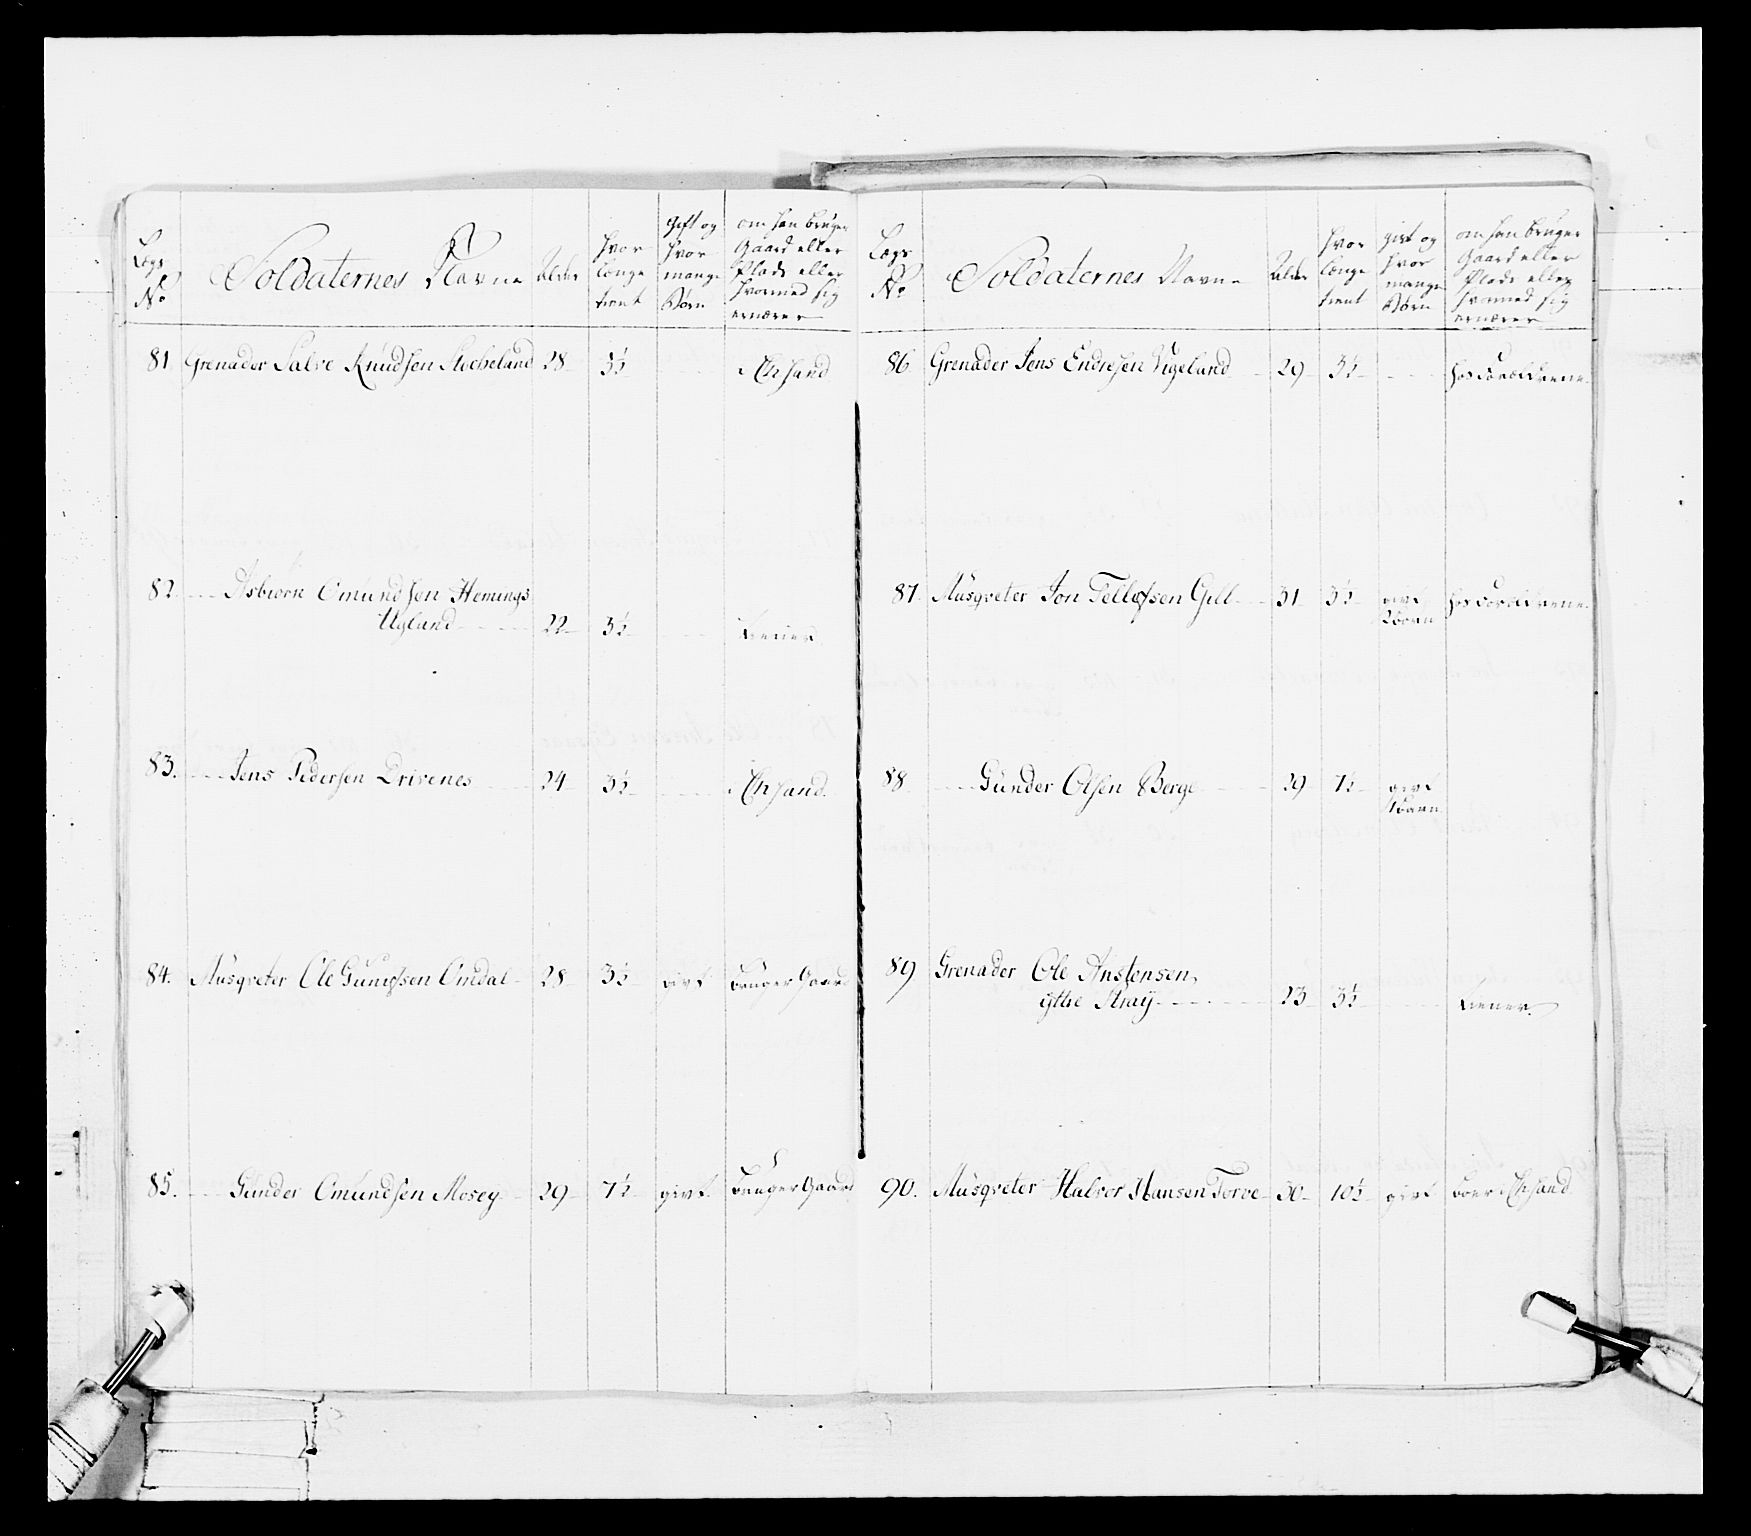 Lægs No
Soldaternes Navne
Alder
hvor længe tient
gift og hvor mange Børn
om han bruger Gaard eller Plads eller hvormed sig ernærer
81. Grenader Salve Knudsen Stocheland 28 3½ i Chsand
82. Asbiörn Omundsen Hemings
Ugland 22 3½ tiener
83. Jens Pedersen Drivenes 24 3½ i Chsand
84. Musqveter Ole Gunufsen Omdal 28 3½ givt bruger Gaard
85. Gunder Omundsen Mosey 29 7½ givt bruger Gaard
Lægs No
Soldaternes Navne
Alder
hvor længe tient
givt og hvor mange Børn
om han bruger Gaard eller Plads eller hvormed sig ernærer
86 Grenader Jens Endresen Vigeland 29 3½ hos Forældrene
87. Musqveter Jon Tellefsen Gill 31 3½ givt hos Forældrene
2 børn
88 Gunder Olsen Berge 29 7½ givt
1 barn
89 Grenader Ole Anstensen
ytire Straÿ 23 3½ tiener
90. Musqveter Halvor Hansen Torve 30 10½ givt boer i Chsand